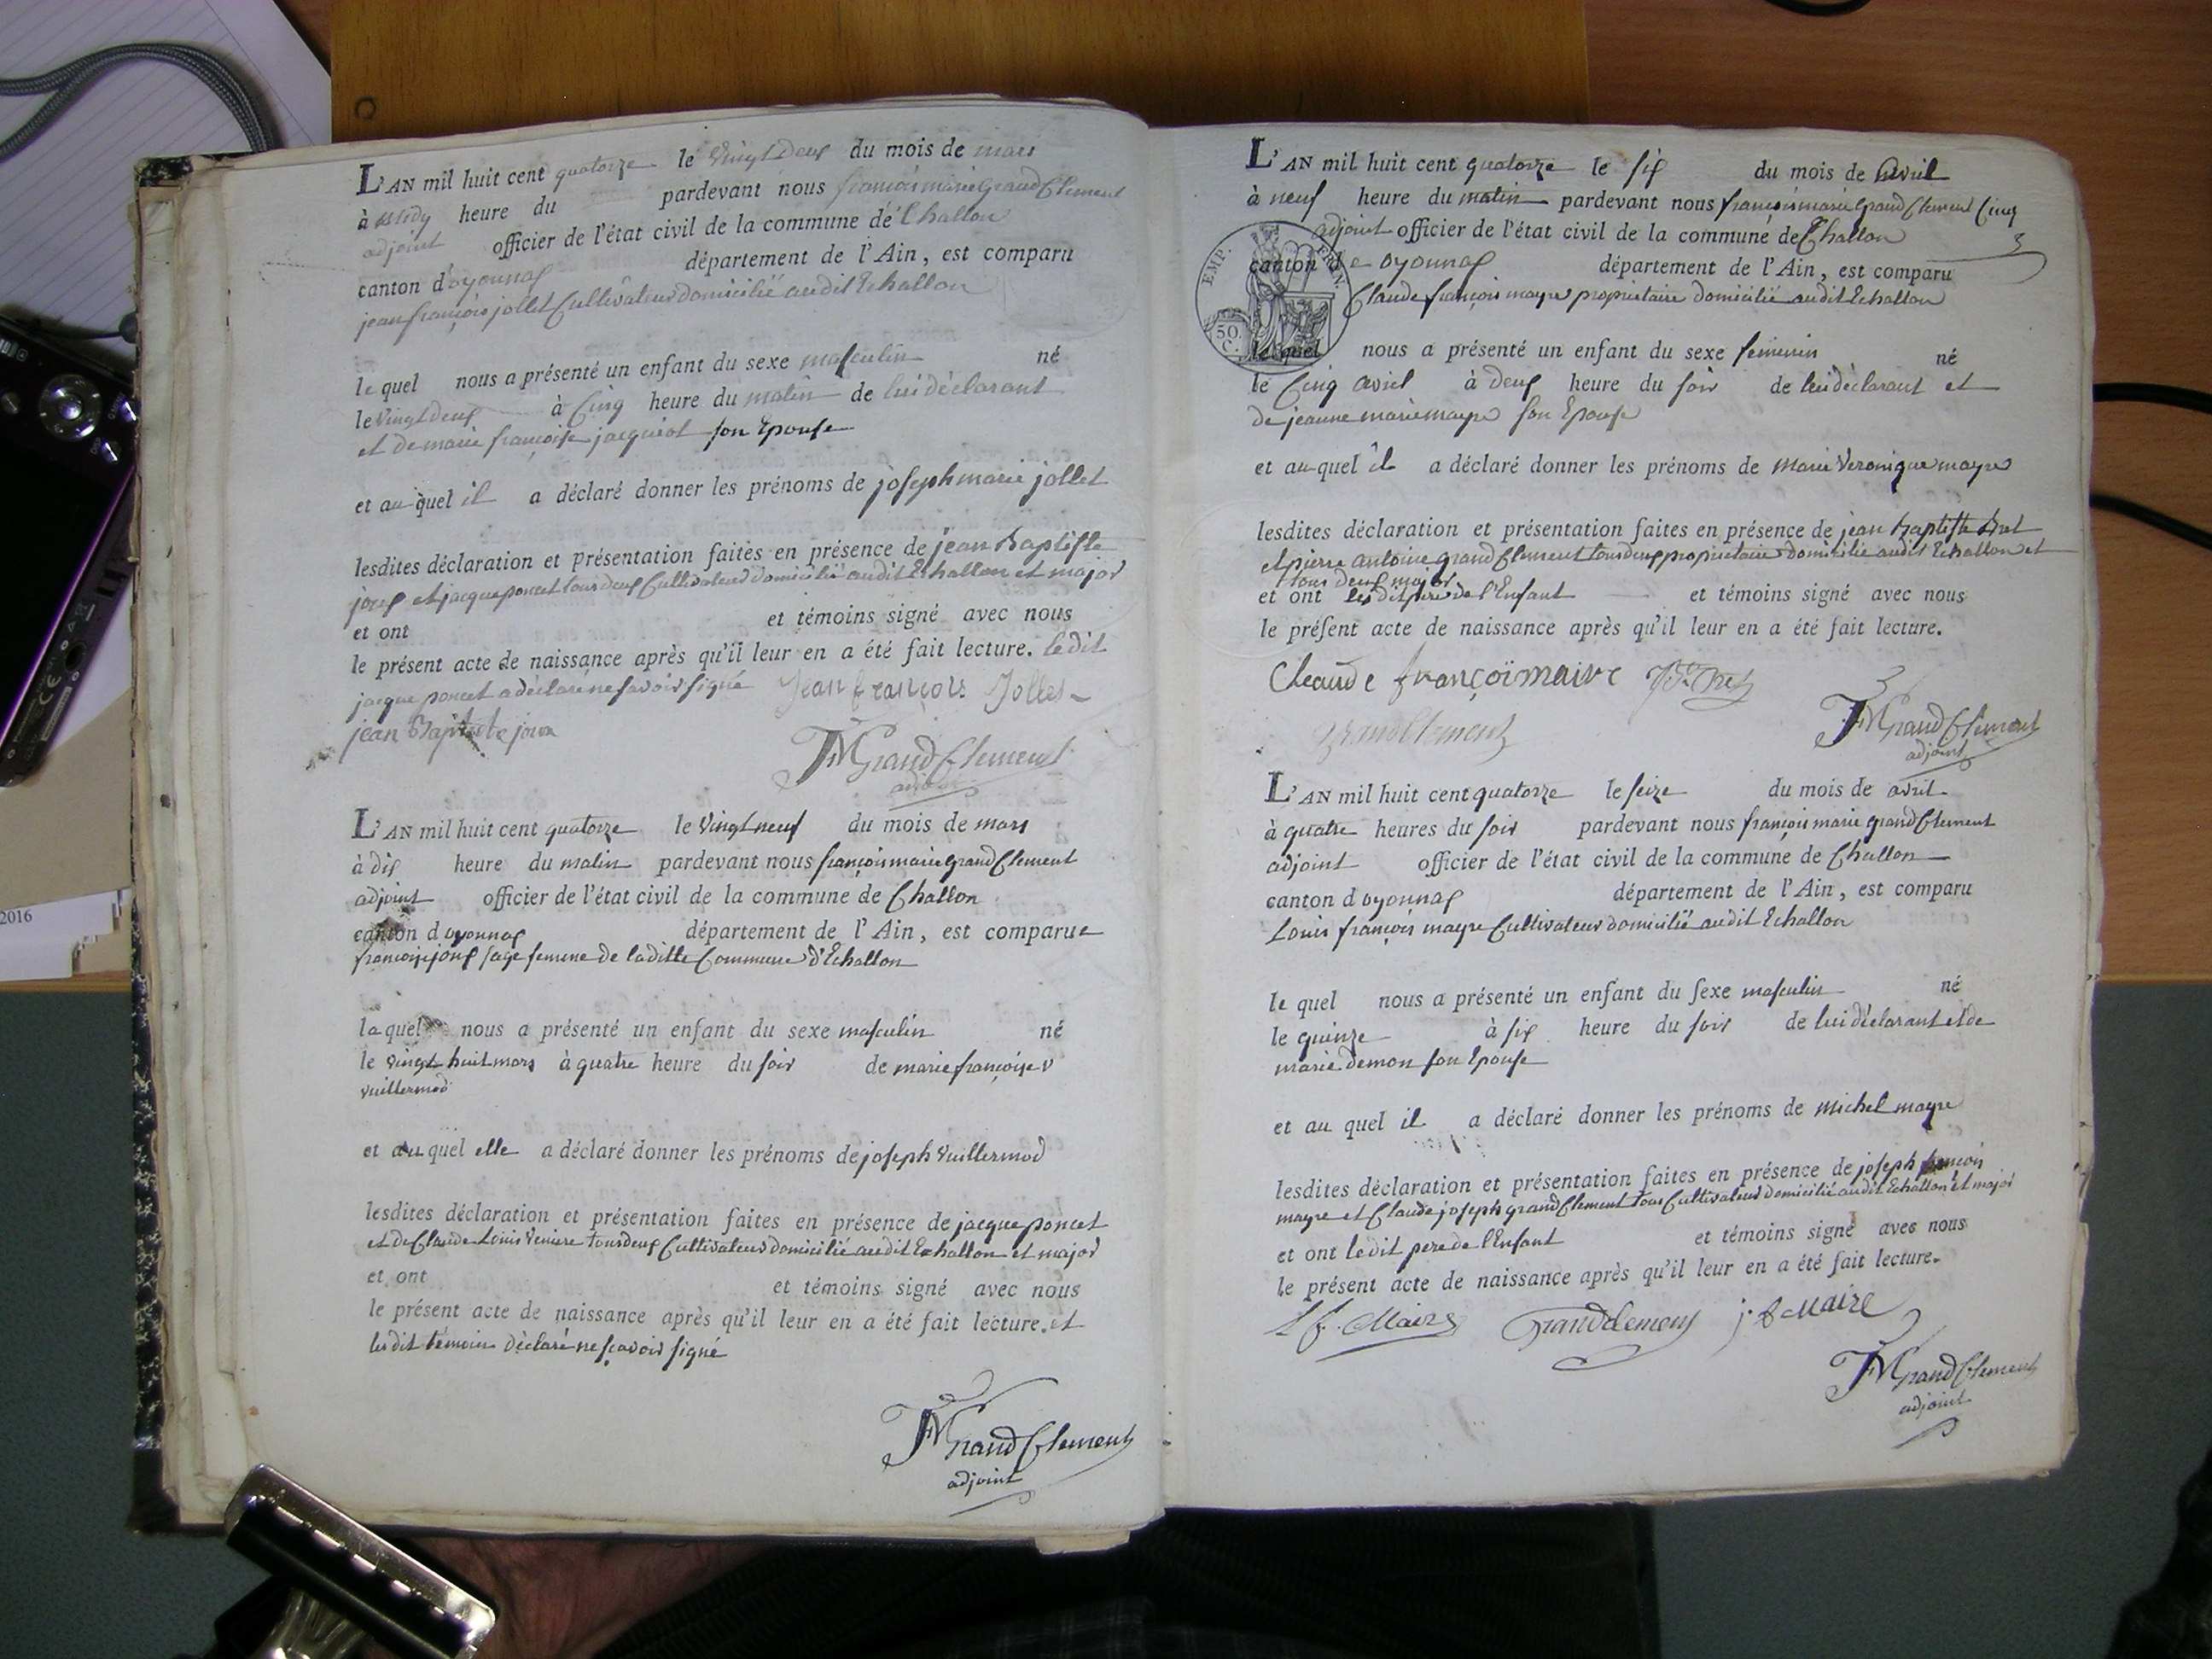 L'AN mil huit cent quatorze le vingt deux du mois de mars
à midy heure du pardevant nous françois marie grand Clement
adjoint officier de l'état civil de la commune de Challon
canton d'oyonnax département de l'Ain, est comparu
jean françois jollet Cultivateur domicilié audit Echallon
le quel nous a présenté un enfant du sexe masculin né
le vingt deux à Cinq heure du matin de lui déclarant
et de marie françoise jacquiot son Epouse
et au quel il a déclaré donner les prénoms de joseph marie jollet
lesdites déclaration et présentation faites en présence de jean Baptiste
joux et jacque poncet tous deux Cultivateur domicilié audit Echallon et major
et ont et témoins signé avec nous
le présent acte de naissance après qu'il leur en a été fait lecture. ledit
jacque poncet a déclaré ne savoir signé Jean françois Jollet
jean Baptiste joux
FM Grand Clement
adjoint
L'AN mil huit cent quatorze le vingt neuf du mois de mars
à dix heure du matin pardevant nous françois marie grand Clement
adjoint officier de l'état civil de la commune de Challon
canton d oyonnax département de l'Ain, est comparue
françoise joux sage femme de laditte Commune d'Echallon
la quel nous a présenté un enfant du sexe masculin né
le vingt huit mars à quatre heure du soir de marie françoise v
vuillermod
et au quel elle a déclaré donner les prénoms de joseph vuillermod
lesdites déclaration et présentation faites en présence de jacque poncet
et de Claude Louis Veniere tous deux Cultivateur domicilié audit Echallon et major
et ont et témoins signé avec nous
le présent acte de naissance après qu'il leur en a été fait lecture. et
lesdit témoin déclaré ne sçavoir signé
FM Grand Clement
adjoint
L'AN mil huit cent quatorze le six du mois de Avril
à neuf heure du matin pardevant nous françois marie grand Clement
adjoint officier de l'état civil de la commune de Challon
canton de oyonnax département de l'Ain, est comparu
Claude françois mayre proprietaire domicilié audit Echallon
EMP. FRAN.
50 C.
le quel nous a présenté un enfant du sexe feminin né
le Cinq avril à deux heure du soir de lui déclarant et
de jeanne marie mayre son Epouse
et au quel il a déclaré donner les prénoms de marie Veronique mayre
lesdites déclaration et présentation faites en présence de jean Baptiste Bret
et pierre antoine grand Clement tous deux proprietaire domicilié audit Echallon et
tous deux major
et ont lesdit pere de l'Enfant et témoins signé avec nous
le présent acte de naissance après qu'il leur en a été fait lecture.
Claude françoi maire
grand Clement
FM Grand Clement
adjoint
L'AN mil huit cent quatorze le seize du mois de avril
à quatre heures du soir pardevant nous françois marie grand Clement
adjoint officier de l'état civil de la commune de Challon
canton d oyonnax département de l'Ain, est comparu
Louis françois mayre Cultivateur domicilié audit Echallon
le quel nous a présenté un enfant du sexe masculin né
le quinze à six heure du soir de lui déclarant et de
marie demon son Epouse
et au quel il a déclaré donner les prénoms de michel mayre
lesdites déclaration et présentation faites en présence de joseph françois
mayre et Claude joseph grand Clement tous Cultivateur domicilié audit Echallon et major
et ont ledit pere de l'Enfant et témoins signé avec nous
le présent acte de naissance après qu'il leur en a été fait lecture.
L f. Maire Grandclement j. f Maire
FM Grand Clement
adjoint
2016